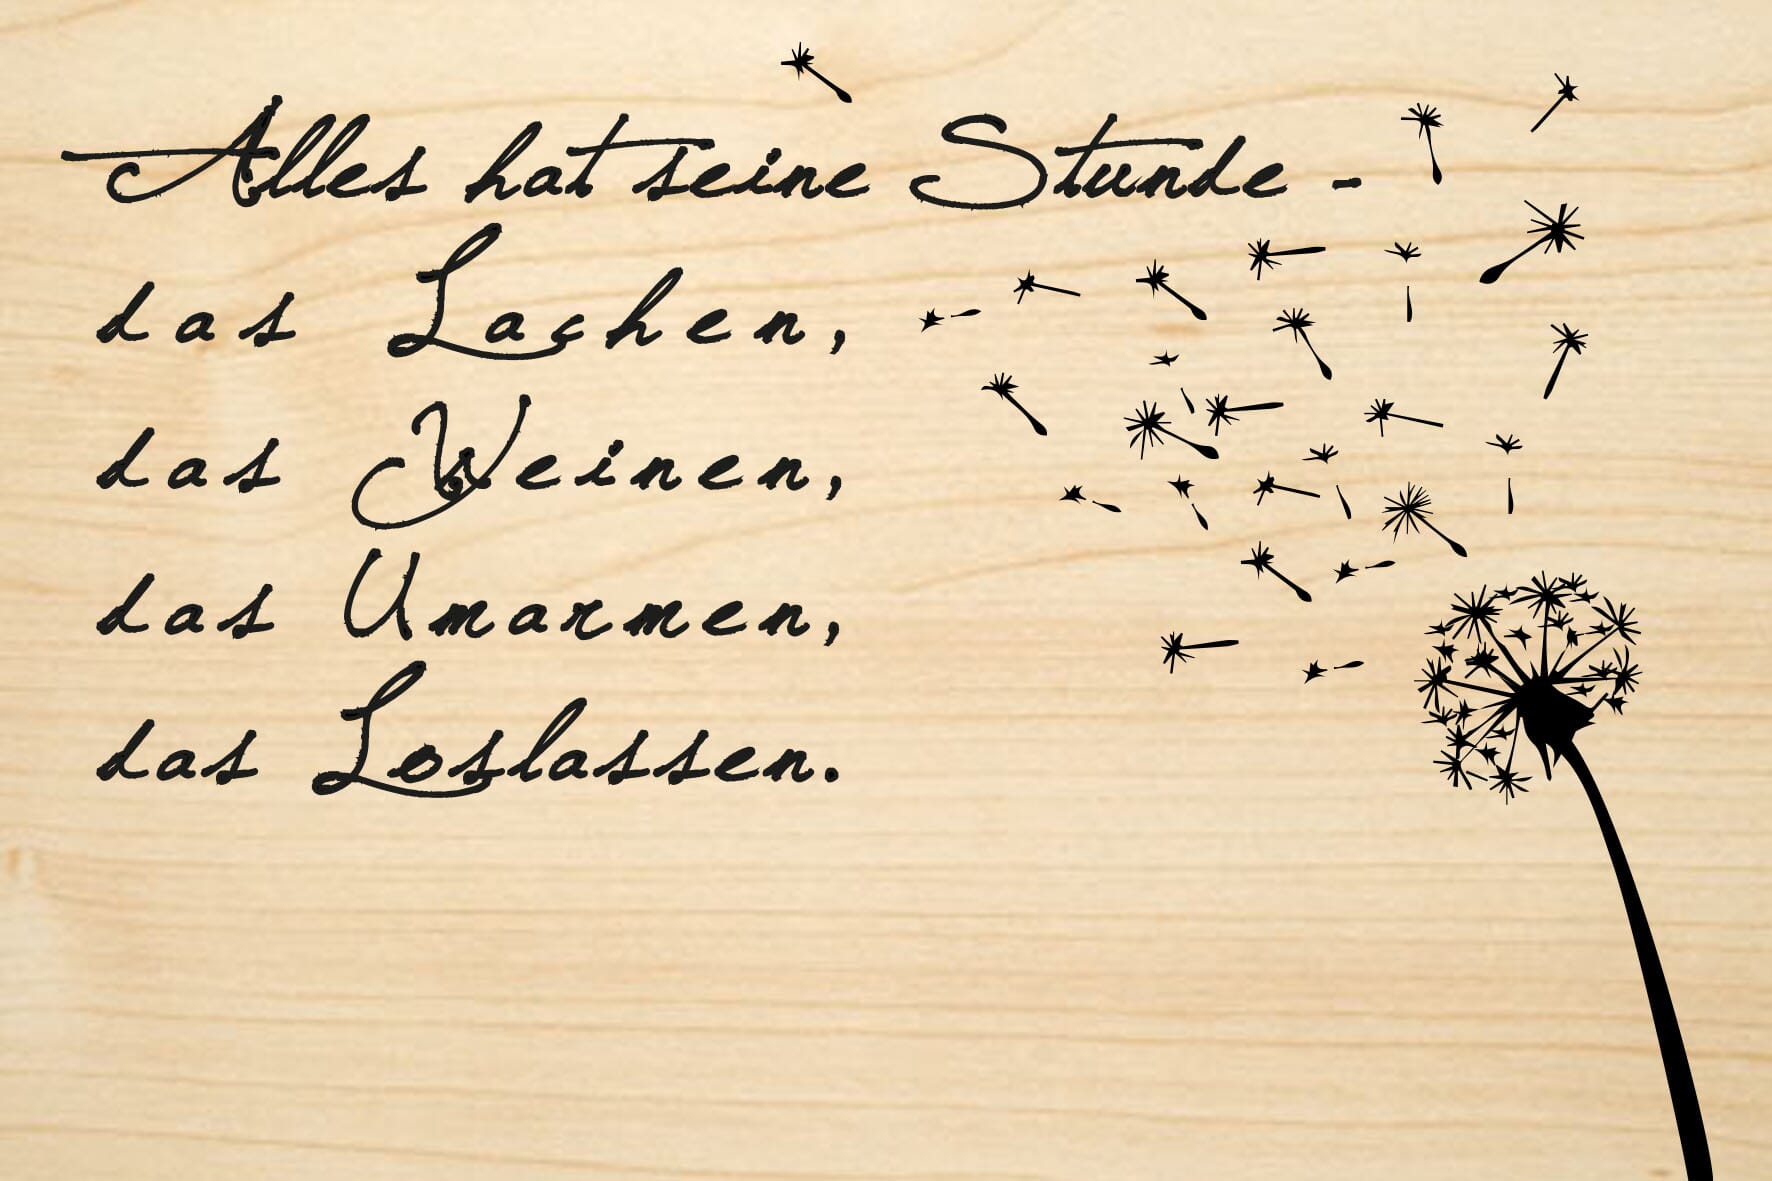 Alles hat seine Stunde -
das Lachen,
das Weinen,
das Umarmen,
das Loslassen.